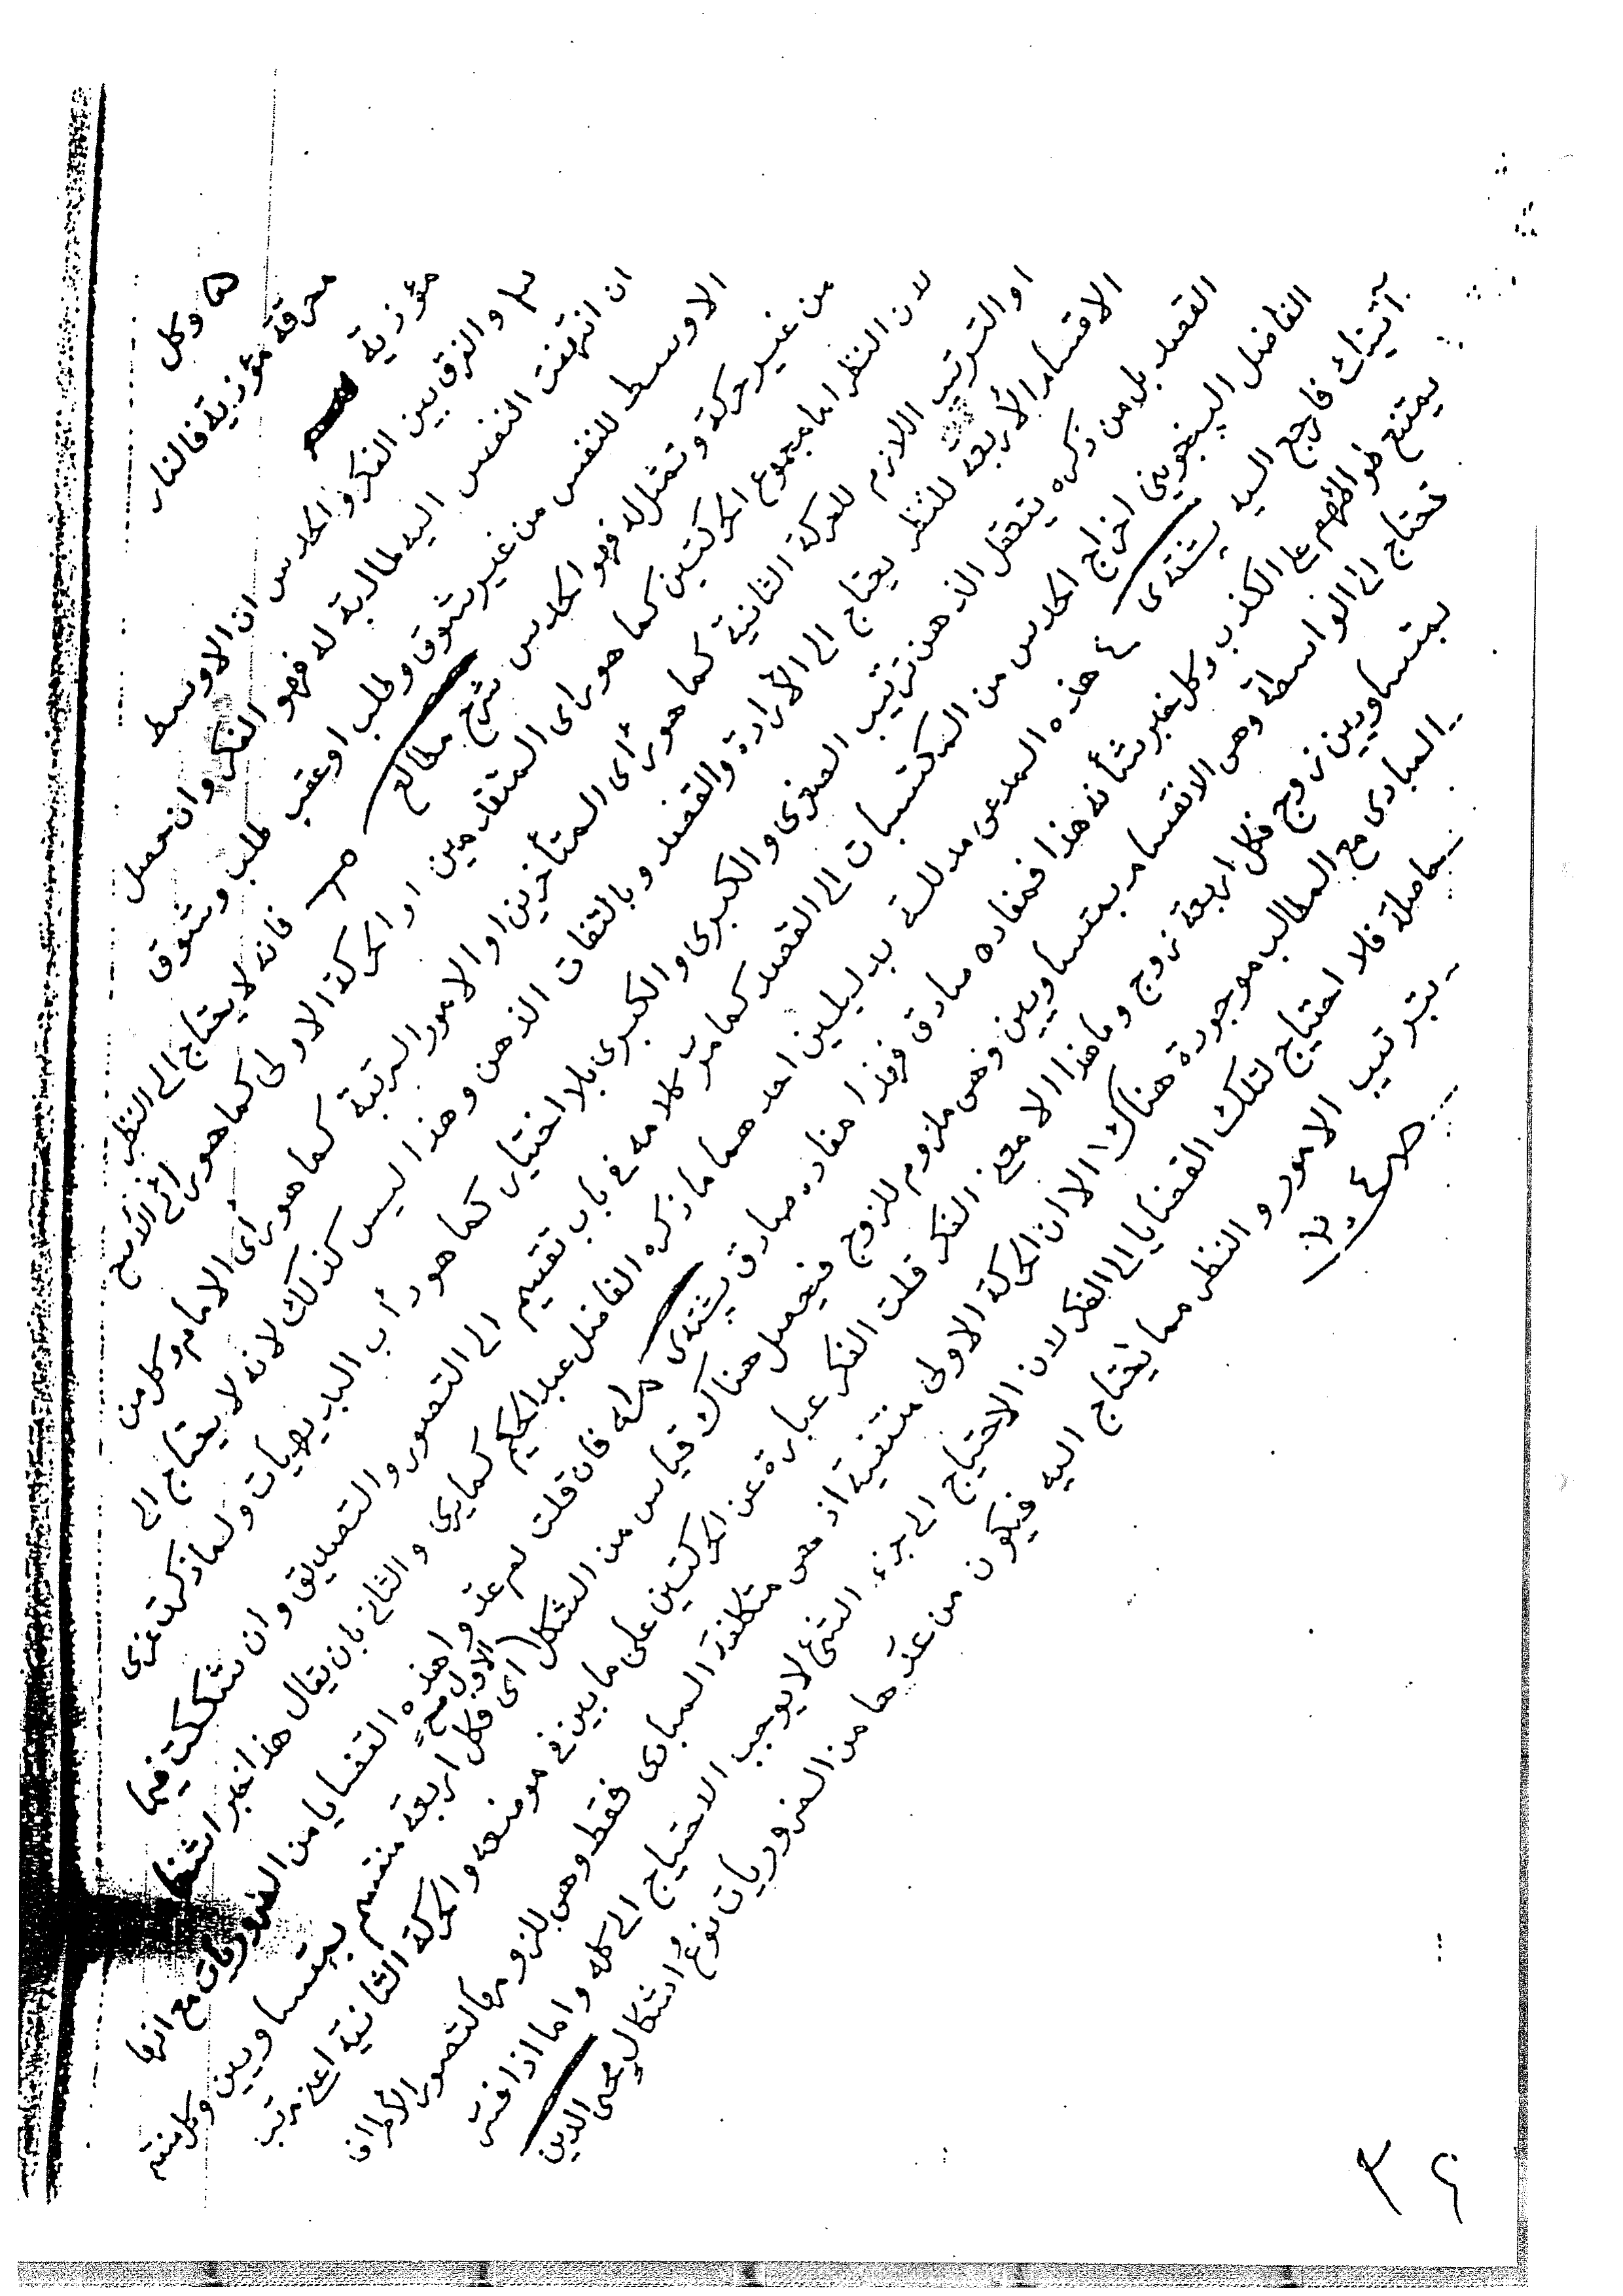 ها وكل
محرقة مؤذية فالنار
مؤذية
والفرق بين الفكر والحدس ان الاوسط
ان انتهضت النفس اليه طالبة له فهو الفكر وان حصل
الاوسط للنفس من غير شوق وطلب او عقيب طلب وشوق
من غير حركة وتمثل له فهو الحدس شرح مطالع فانه لا يحتاج الى النظر
لان النظر اما مجموع الحركتين كما هو راى المتقدمين او الحركة الاولى كما هو
او الترتيب اللازم للحركة الثانية كما هو رأى المتأخرين او الامور المرتبة كما هو راى الامام وكل من
الاقسام الأربعة للنظر يحتاج الى الأرادة والقصد وبالتفات الذهن وهذا ليس كذلك لانه لا يحتاج الى
القصد بل من ذكره يتعقل الذهن ترتيب الصغرى والكبرى والكبرى بلا اختيار كما هو دأب البديهيات ولما ذكرت ترى
الفاضل البينجوينى اخراج الحدس من المكتسبات الى القصد كما مرّ كلامه فى باب تقسيم الى التصور والتصديق وان شككت فيما
آتيناك فارجع اليه هذه المدعى مدللة بدليلين احدهما ما ذكره الفاضل عبدالحكيم كما يرى والثانى بان يقال هذا خبر
يمتنع على الكذب وكل خبر شأنه هذا فمفاده صادق فهذا مفاده صادق فان قلت لم عدوا هذه القضايا من الضروريات مع انها
تحتاج الى الواسطة وهى الانقسام بمتساويين وهى ملزوم للزوج فيحصل هناك قياس من الشكل الاول اى كل اربعة منقسم بمتساويين وكل منقسم
بمتساويين زوج فكل اربعة زوج وما هذا الا معنى الفكر قلت الفكر عبارة عن الحركتين على ما بين فى موضعه والحركة الثانية اعنى ترتيب
المبادى مع المطالب موجودة هناك الا ان الحركة الاولى منتفية اذ هى متكلفة المبادى فقط وهى للزومها لتصور الأطراف
حاصلة فلا احتياج لتلك القضايا الى الفكر لان الاحتياج الى جزء الشئ لا يوجب الاحتياج الى كله واما اذا فسر
بترتيب الامور والنظر مما يحتاج اليه فيكون من عدّها من الضروريات نوع اشكال محى الدين